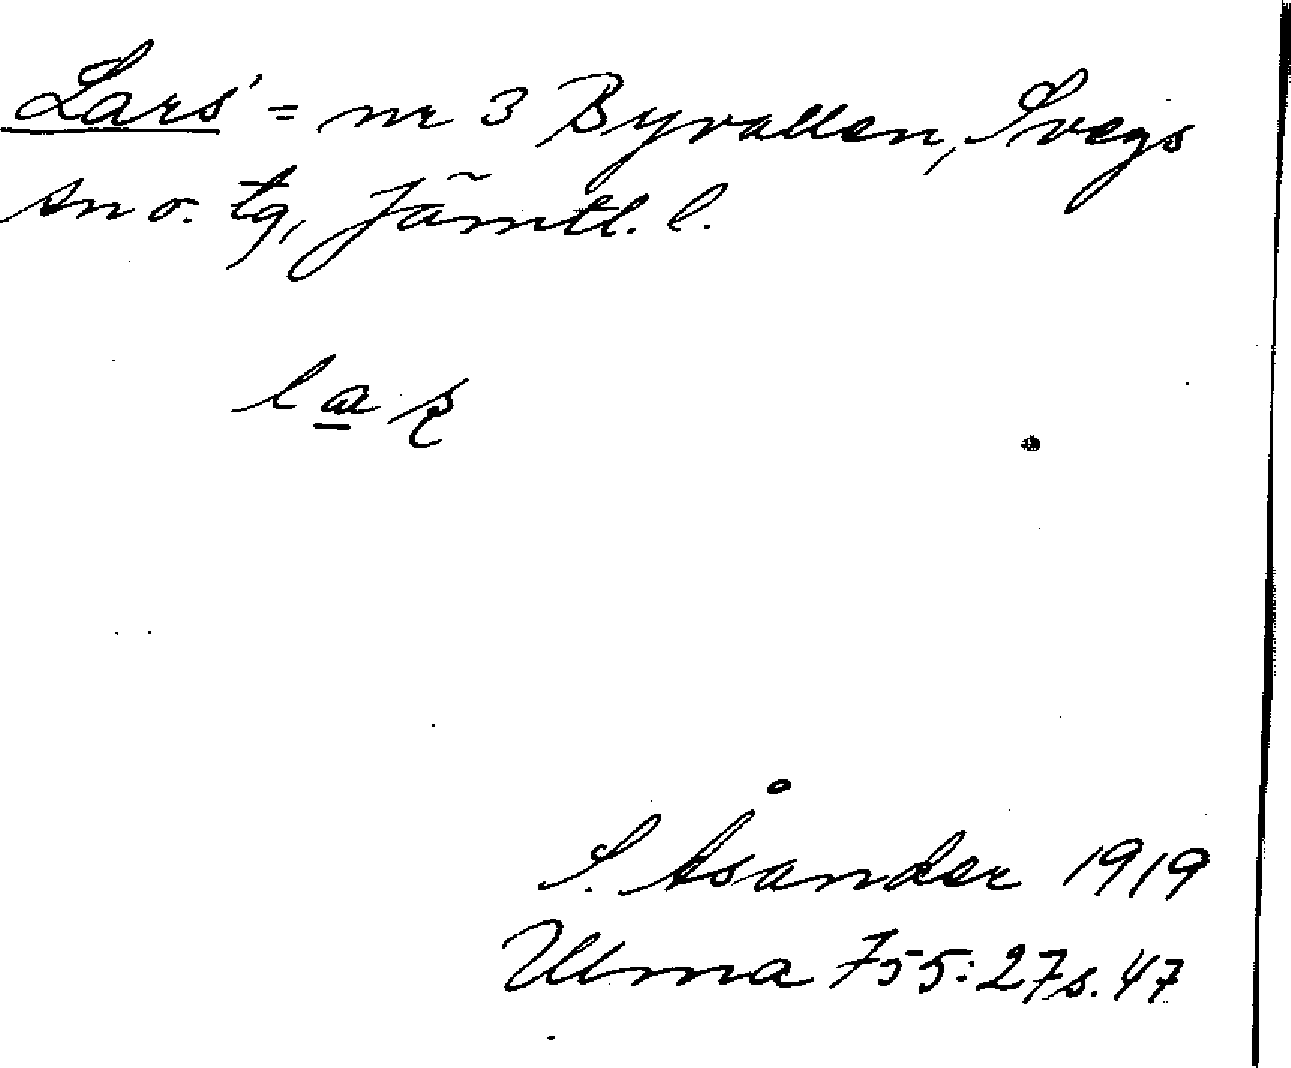 Lars' = nr 3 Byvallen, Svegs
sn o. tg, Jämtl. l.
S. Åsander 1919
Ulma 755:27 s. 47